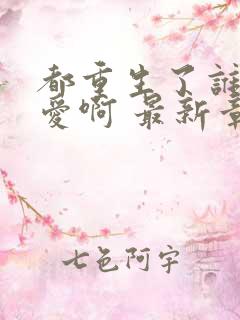 都重生了誰
愛啊 最新章
七色阿宇